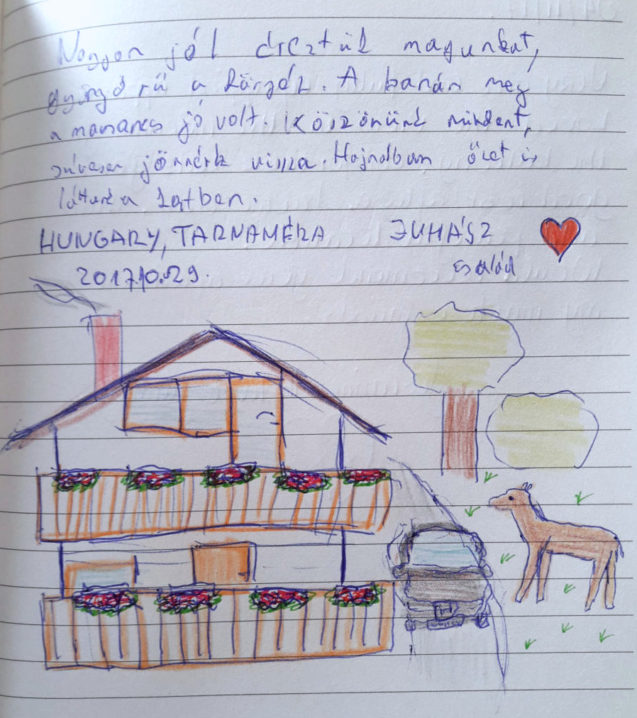 Nagyon jól éreztük magunkat,
gyönyörű a környék. A banán meg
a mamámés jó volt. Köszönünk mindent,
szívesen jönnénk vissza. Hajnalban őzet is
láttunk a kertben.
HUNGARY, TARNAMÉRA JUHÁSZ
család
2017.10.29.